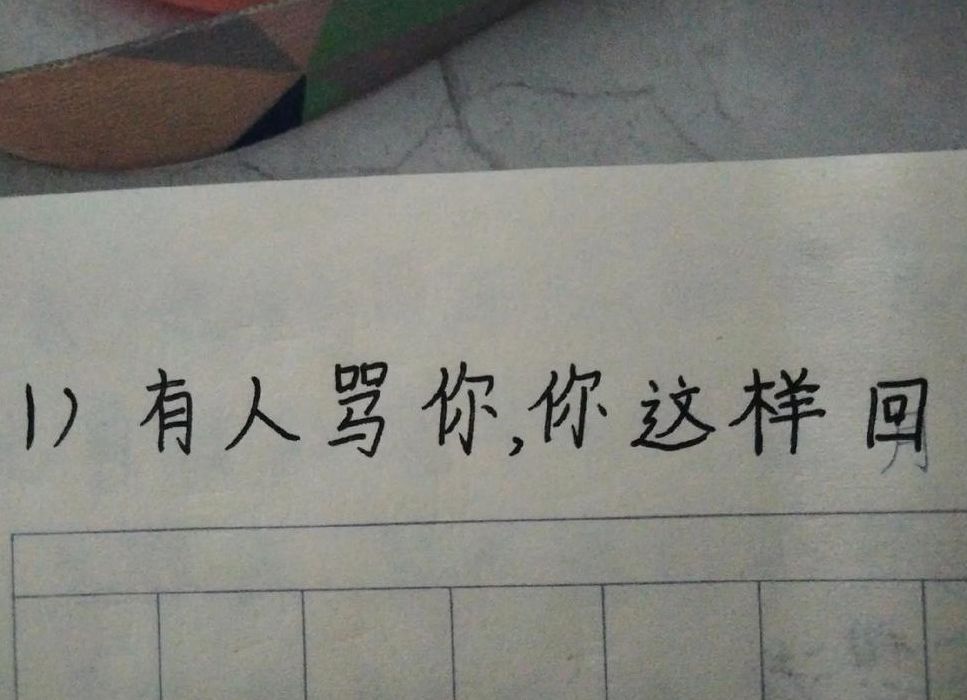 1) 有人骂你,你这样回